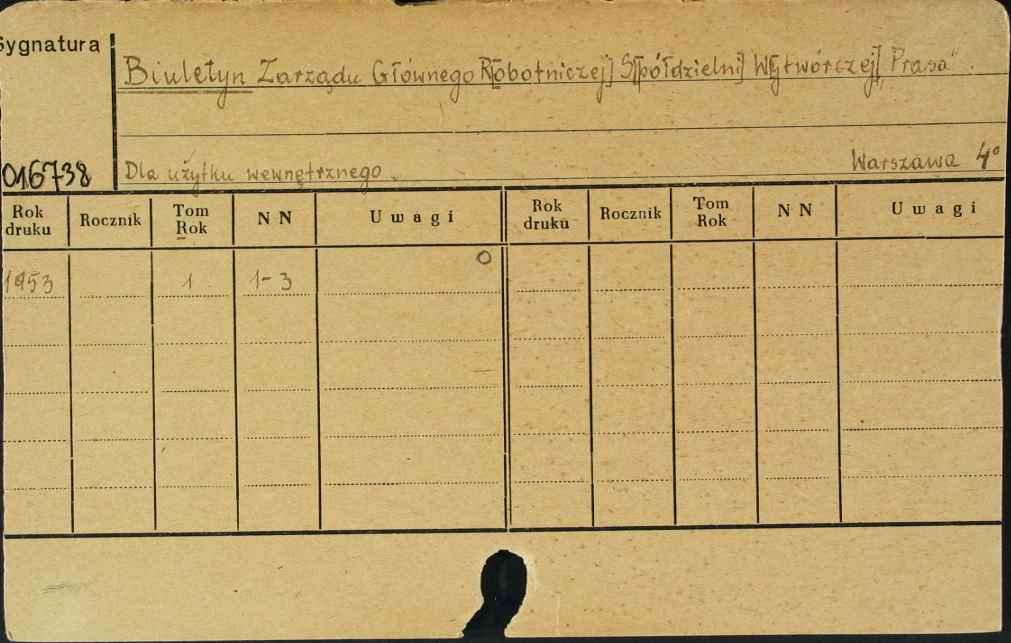 Sygnatura
Biuletyn Zarządu Głównego R[obotniczej] S[półdzielni] W[ytwórczej] „Prasa".
016738
Dla użytku wewnętrznego. Warszawa 4°
Rok druku Rocznik Tom Rok N N Uwagi Rok druku Rocznik Tom Rok N N Uwagi
1953 1 1-3